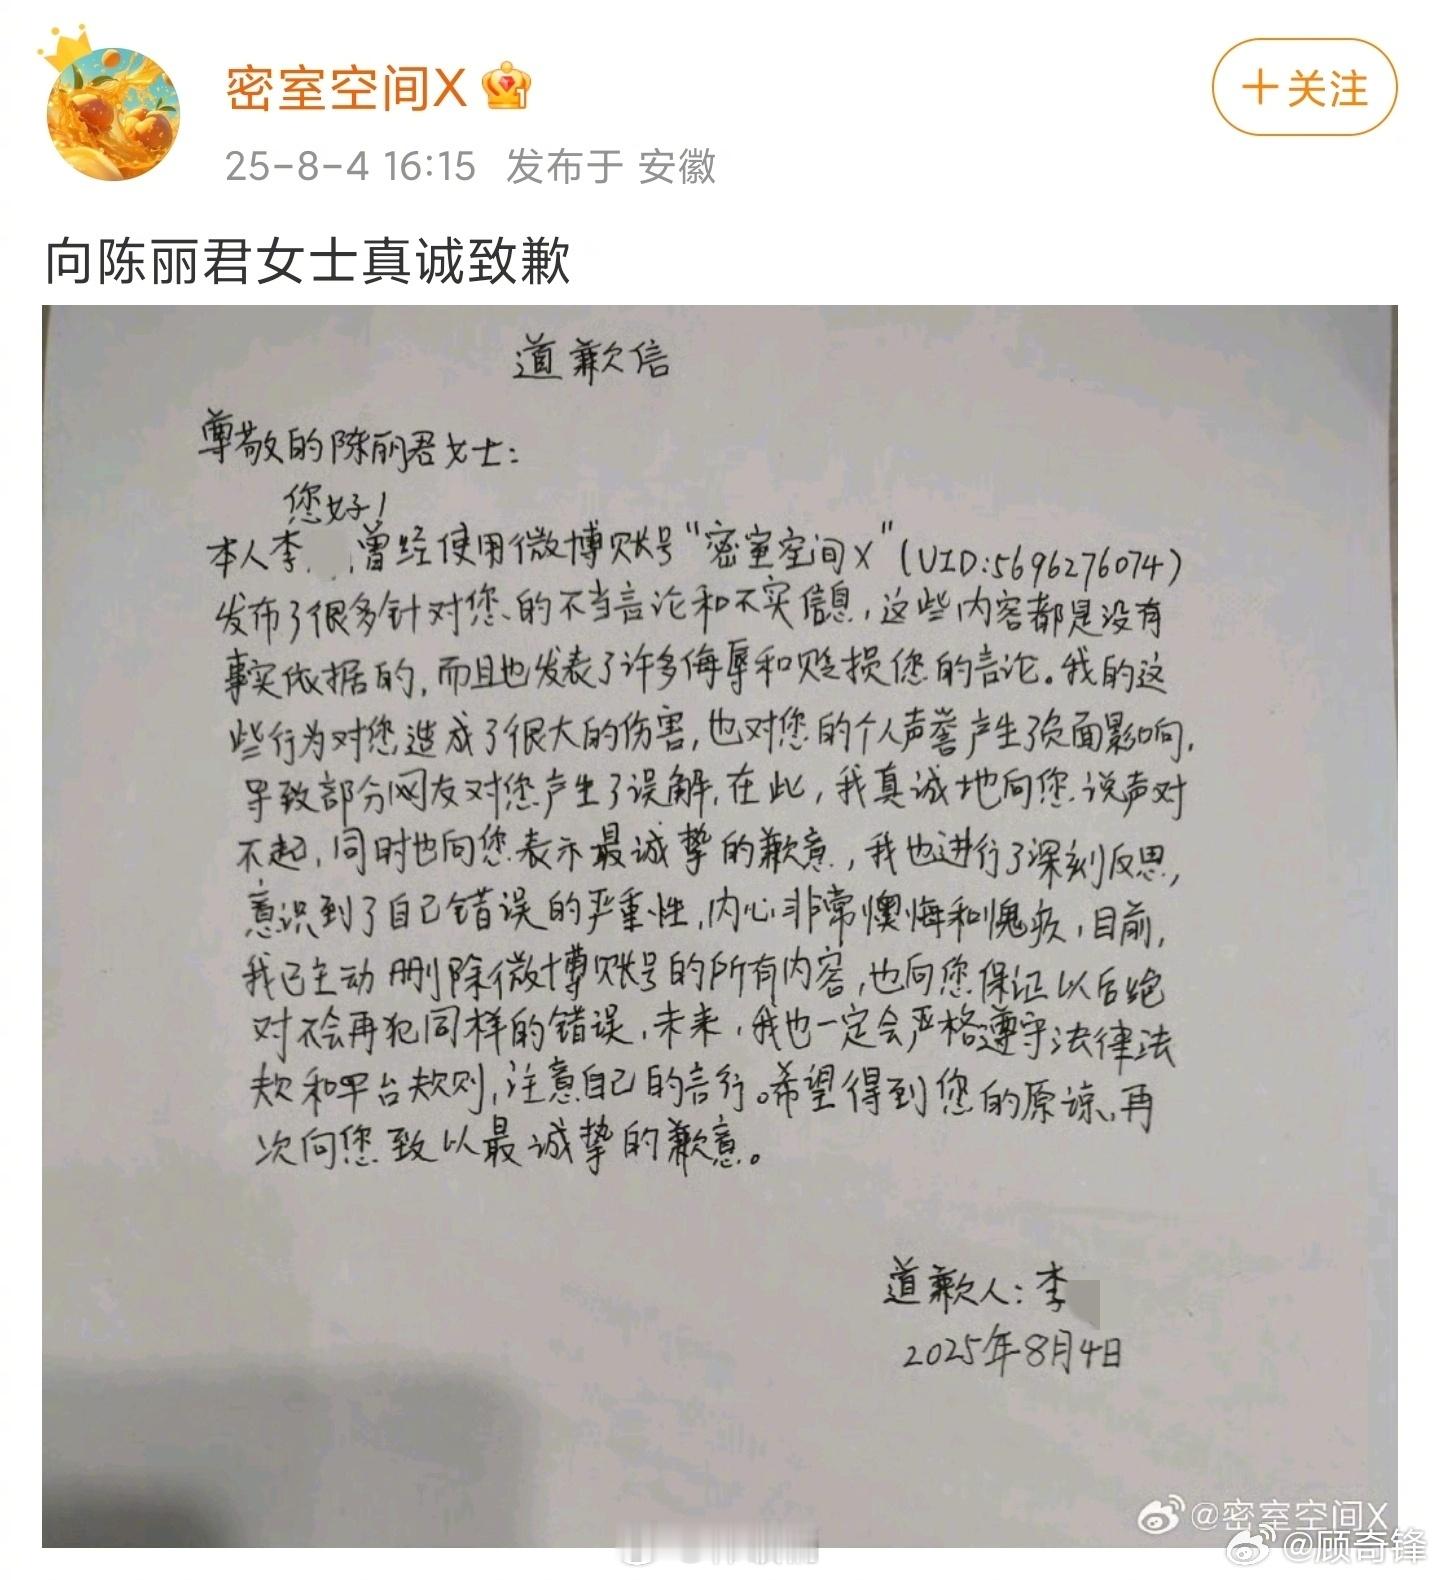 密室空间X
+关注
25-8-4 16:15 发布于 安徽
向陈丽君女士真诚致歉
道歉信
尊敬的陈丽君女士:
您好!
本人李 ,曾经使用微博账号"密室空间X"(UID:5696276074)
发布了很多针对您的不当言论和不实信息,这些内容都是没有
事实依据的,而且也发表了许多侮辱和贬损您的言论。我的这
些行为对您造成了很大的伤害,也对您的个人声誉产生了负面影响,
导致部分网友对您产生了误解,在此,我真诚地向您说声对
不起,同时也向您表示最诚挚的歉意,我也进行了深刻反思,
意识到了自己错误的严重性,内心非常懊悔和愧疚,目前,
我已主动删除微博账号的所有内容,也向您保证以后绝
对不会再犯同样的错误,未来,我也一定会严格遵守法律法
规和平台规则,注意自己的言行。希望得到您的原谅,再
次向您致以最诚挚的歉意。
道歉人:李
2025年8月4日
@密室空间X
@顾奇锋